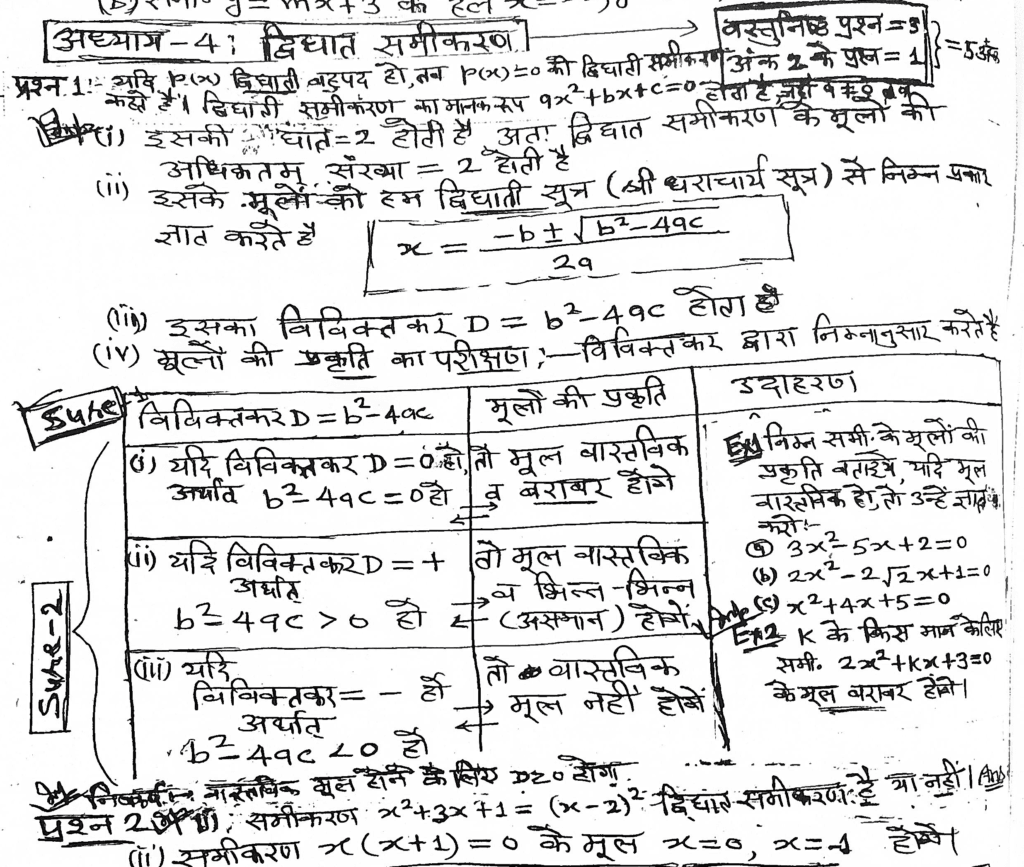 y = mx + 3 के हल x =
अध्याय-4: द्विघात समीकरण
वस्तुनिष्ठ प्रश्न = 3
अंक 2 के प्रश्न = 1
= 5 अंक
प्रश्न 1:- यदि P(x) द्विघाती बहुपद हो, तब P(x)=0 को द्विघाती समीकरण
कहते है। द्विघाती समीकरण का मानक रूप ax²+bx+c=0 होता है, जहाँ a≠0
(i) इसकी घात=2 होती है अतः द्विघात समीकरण के मूलों की
अधिकतम संख्या = 2 होती है
(ii) इसके मूलों को हम द्विघाती सूत्र (श्री धराचार्य सूत्र) से निम्न प्रकार
ज्ञात करते है
x = -b ± √b²-4ac / 2a
(iii) इसका विविक्तकर D = b²-4ac होगा
(iv) मूलों की प्रकृति का परीक्षण:- विविक्तकर द्वारा निम्नानुसार करते है
Sure-1
विविक्तकर D = b²-4ac
मूलों की प्रकृति
उदाहरण
(i) यदि विविक्तकर D=0 हो,
अर्थात b²-4ac=0 हो
तो मूल वास्तविक
व बराबर होंगे
(ii) यदि विविक्तकर D = +
अर्थात्
b²-4ac > 0 हो
तो मूल वास्तविक
व भिन्न-भिन्न
(असमान) होंगे
(iii) यदि
विविक्तकर = - हो
अर्थात्
b²-4ac < 0 हो
तो वास्तविक
मूल नहीं होंगे
Ex1 निम्न समी. के मूलों की
प्रकृति बताइये, यदि मूल
वास्तविक हो, तो उन्हें ज्ञात
करो:-
(a) 3x²-5x+2=0
(b) 2x²-2√2x+1=0
(c) x²+4x+5=0
Imp Ex2 K के किस मान के लिए
समी. 2x²+Kx+3=0
के मूल बराबर होंगे।
Sure-2
निष्कर्ष:- वास्तविक मूल होने के लिए D≥0 होगा
प्रश्न 2 (i) समीकरण x²+3x+1 = (x-2)² द्विघात समीकरण है या नहीं। (Ans
(ii) समीकरण x(x+1)=0 के मूल x=0, x=-1 होंगे।